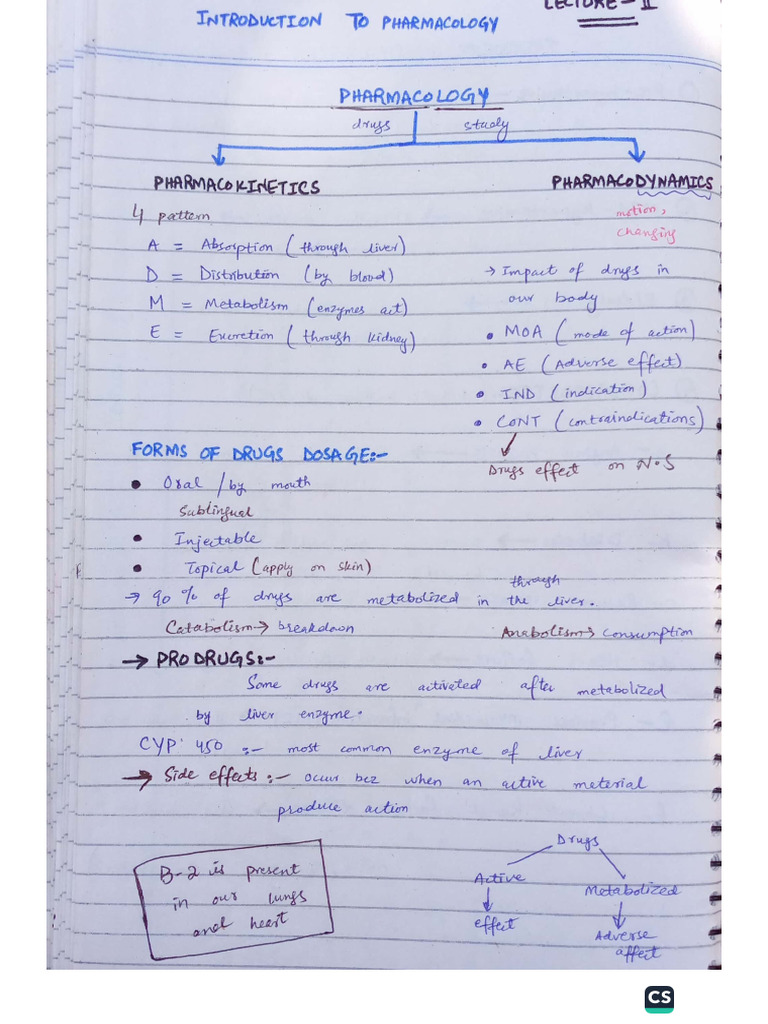 LECTURE-II
INTRODUCTION TO PHARMACOLOGY
PHARMACOLOGY
drugs study
PHARMACOKINETICS
4 pattern
A = Absorption (through liver)
D = Distribution (by blood)
M = Metabolism (enzymes act)
E = Excretion (through kidney)
PHARMACODYNAMICS
motion,
changing
→ Impact of drugs in
our body
• MOA (mode of action)
• AE (Adverse effect)
• IND (indication)
• CONT (contraindications)
Drugs effect on N.S
FORMS OF DRUGS DOSAGE:-
• Oral / by mouth
Sublingual
• Injectable
• Topical (apply on skin)
through
→ 90% of drugs are metabolized in the liver.
Catabolism → breakdown Anabolism → Consumption
→ PRODRUGS:-
Some drugs are activated after metabolized
by liver enzyme.
CYP 450 :- most common enzyme of liver
→ Side effects :- occur bcz when an active meterial
produce action
B-2 is present
in our lungs
and heart
Drugs
Active Metabolized
effect Adverse
affect
CS